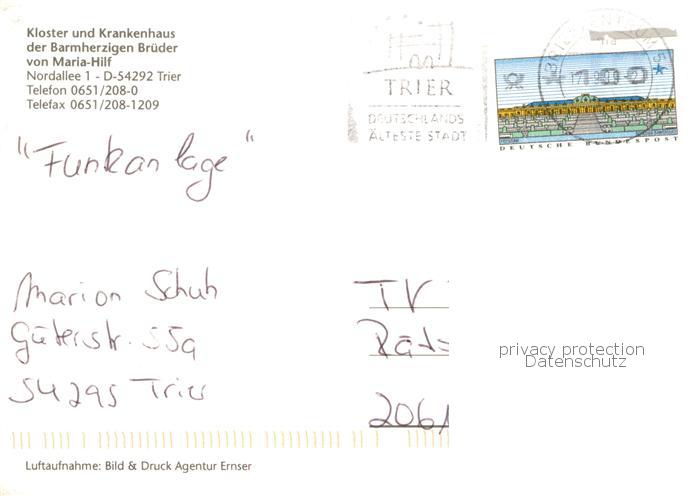 Kloster und Krankenhaus
der Barmherzigen Brüder
von Maria-Hilf
Nordallee 1 - D-54292 Trier
Telefon 0651/208-0
Telefax 0651/208-1209
TRIER
DEUTSCHLANDS
ÄLTESTE STADT
BRIEFZENTRUM
100
DEUTSCHE BUNDESPOST
"Funkanlage"
Marion Schuh
Güterstr. 55a
54295 Trier
TV
Rät
206
privacy protection
Datenschutz
Luftaufnahme: Bild & Druck Agentur Ernser